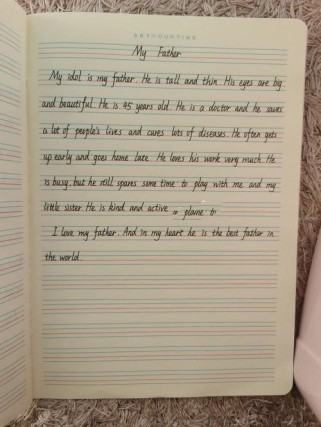 My Father
My idol is my father. He is tall and thin. His eyes are big
and beautiful. He is 45 years old. He is a doctor and he saves
a lot of people's lives and cures lots of diseases. He often gets
up early and goes home late. He loves his work very much. He
is busy, but he still spares some time to play with me and my
little sister. He is kind and active
I love my father. And in my heart he is the best father in
the world.